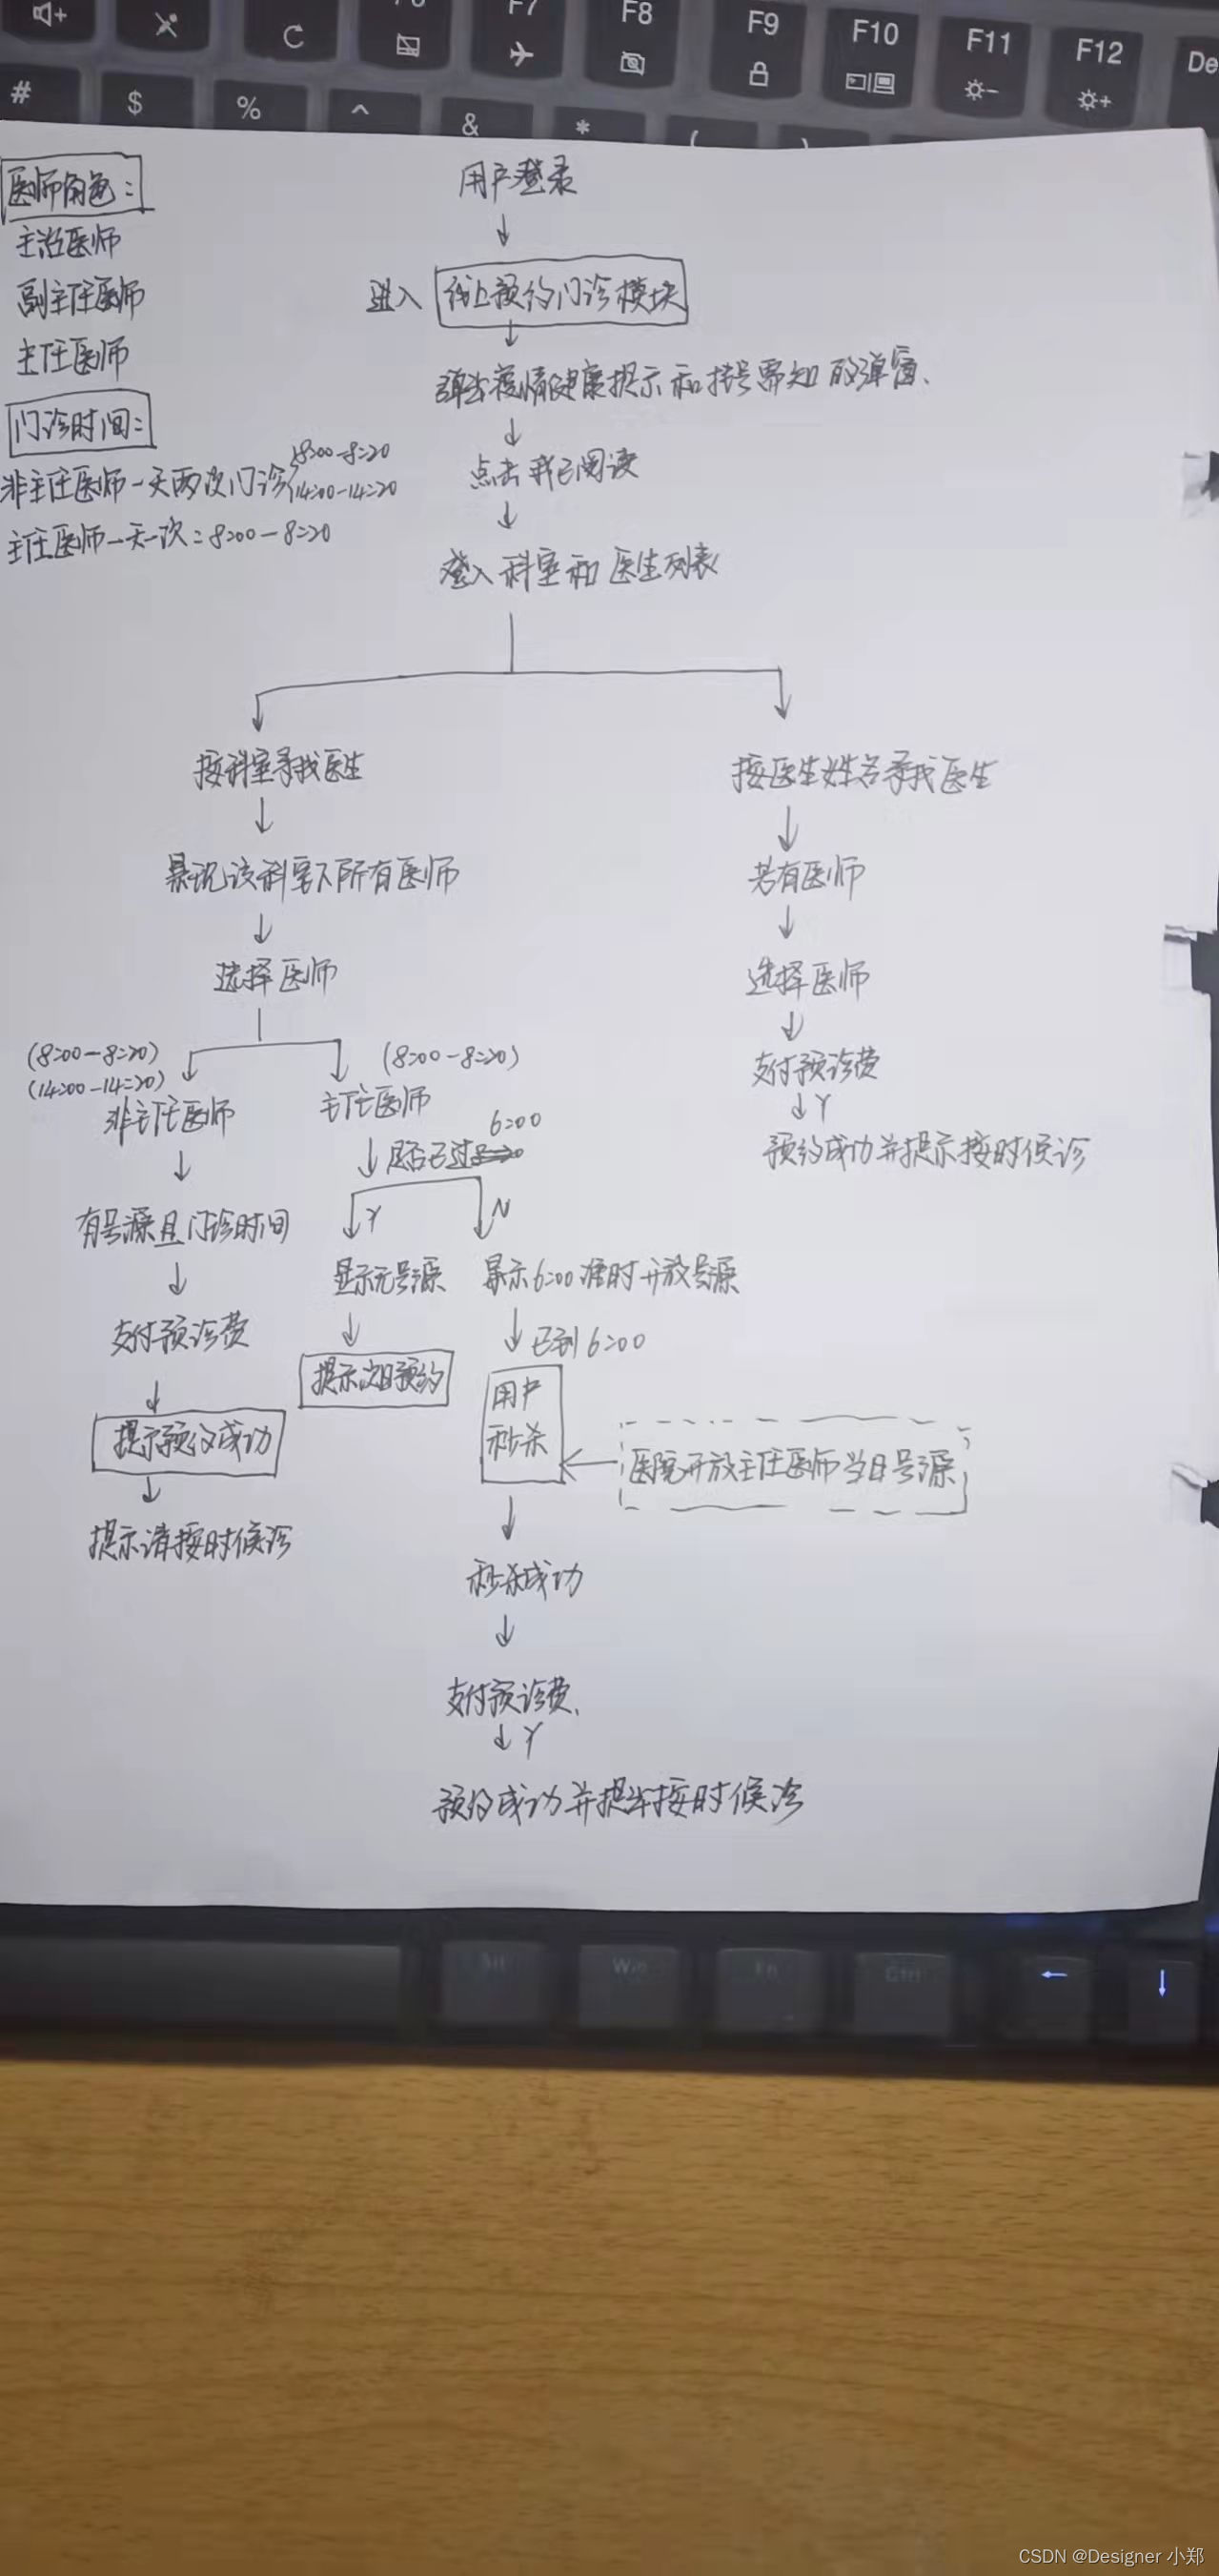 F6
F7
F8
F9
F10
F11
F12
De
C
#
$
%
^
&
*
(
)
医师角色:
主治医师
副主任医师
主任医师
门诊时间:
非主任医师一天两次门诊 8:00-8:20
14:00-14:20
主任医师一天一次:8:00-8:20
用户登录
进入 线上预约门诊模块
弹出疫情健康提示和挂号需知的弹窗、
点击我已阅读
登入科室和医生列表
按科室寻找医生
显现该科室下所有医师
选择医师
(8:00-8:20)
(14:00-14:20)
非主任医师
有号源且门诊时间
支付预诊费
提示预约成功
提示请按时候诊
(8:00-8:20)
主任医师
是否已过 6:00
Y
N
显示无号源
提示次日预约
显示6:00准时开放号源
已到6:00
用户
秒杀
医院开放主任医师当日号源
秒杀成功
支付预诊费、
Y
预约成功并提示按时候诊
按医生姓名寻找医生
若有医师
选择医师
支付预诊费
Y
预约成功并提示按时候诊
Alt
Win
Fn
Ctrl
CSDN @Designer 小郑